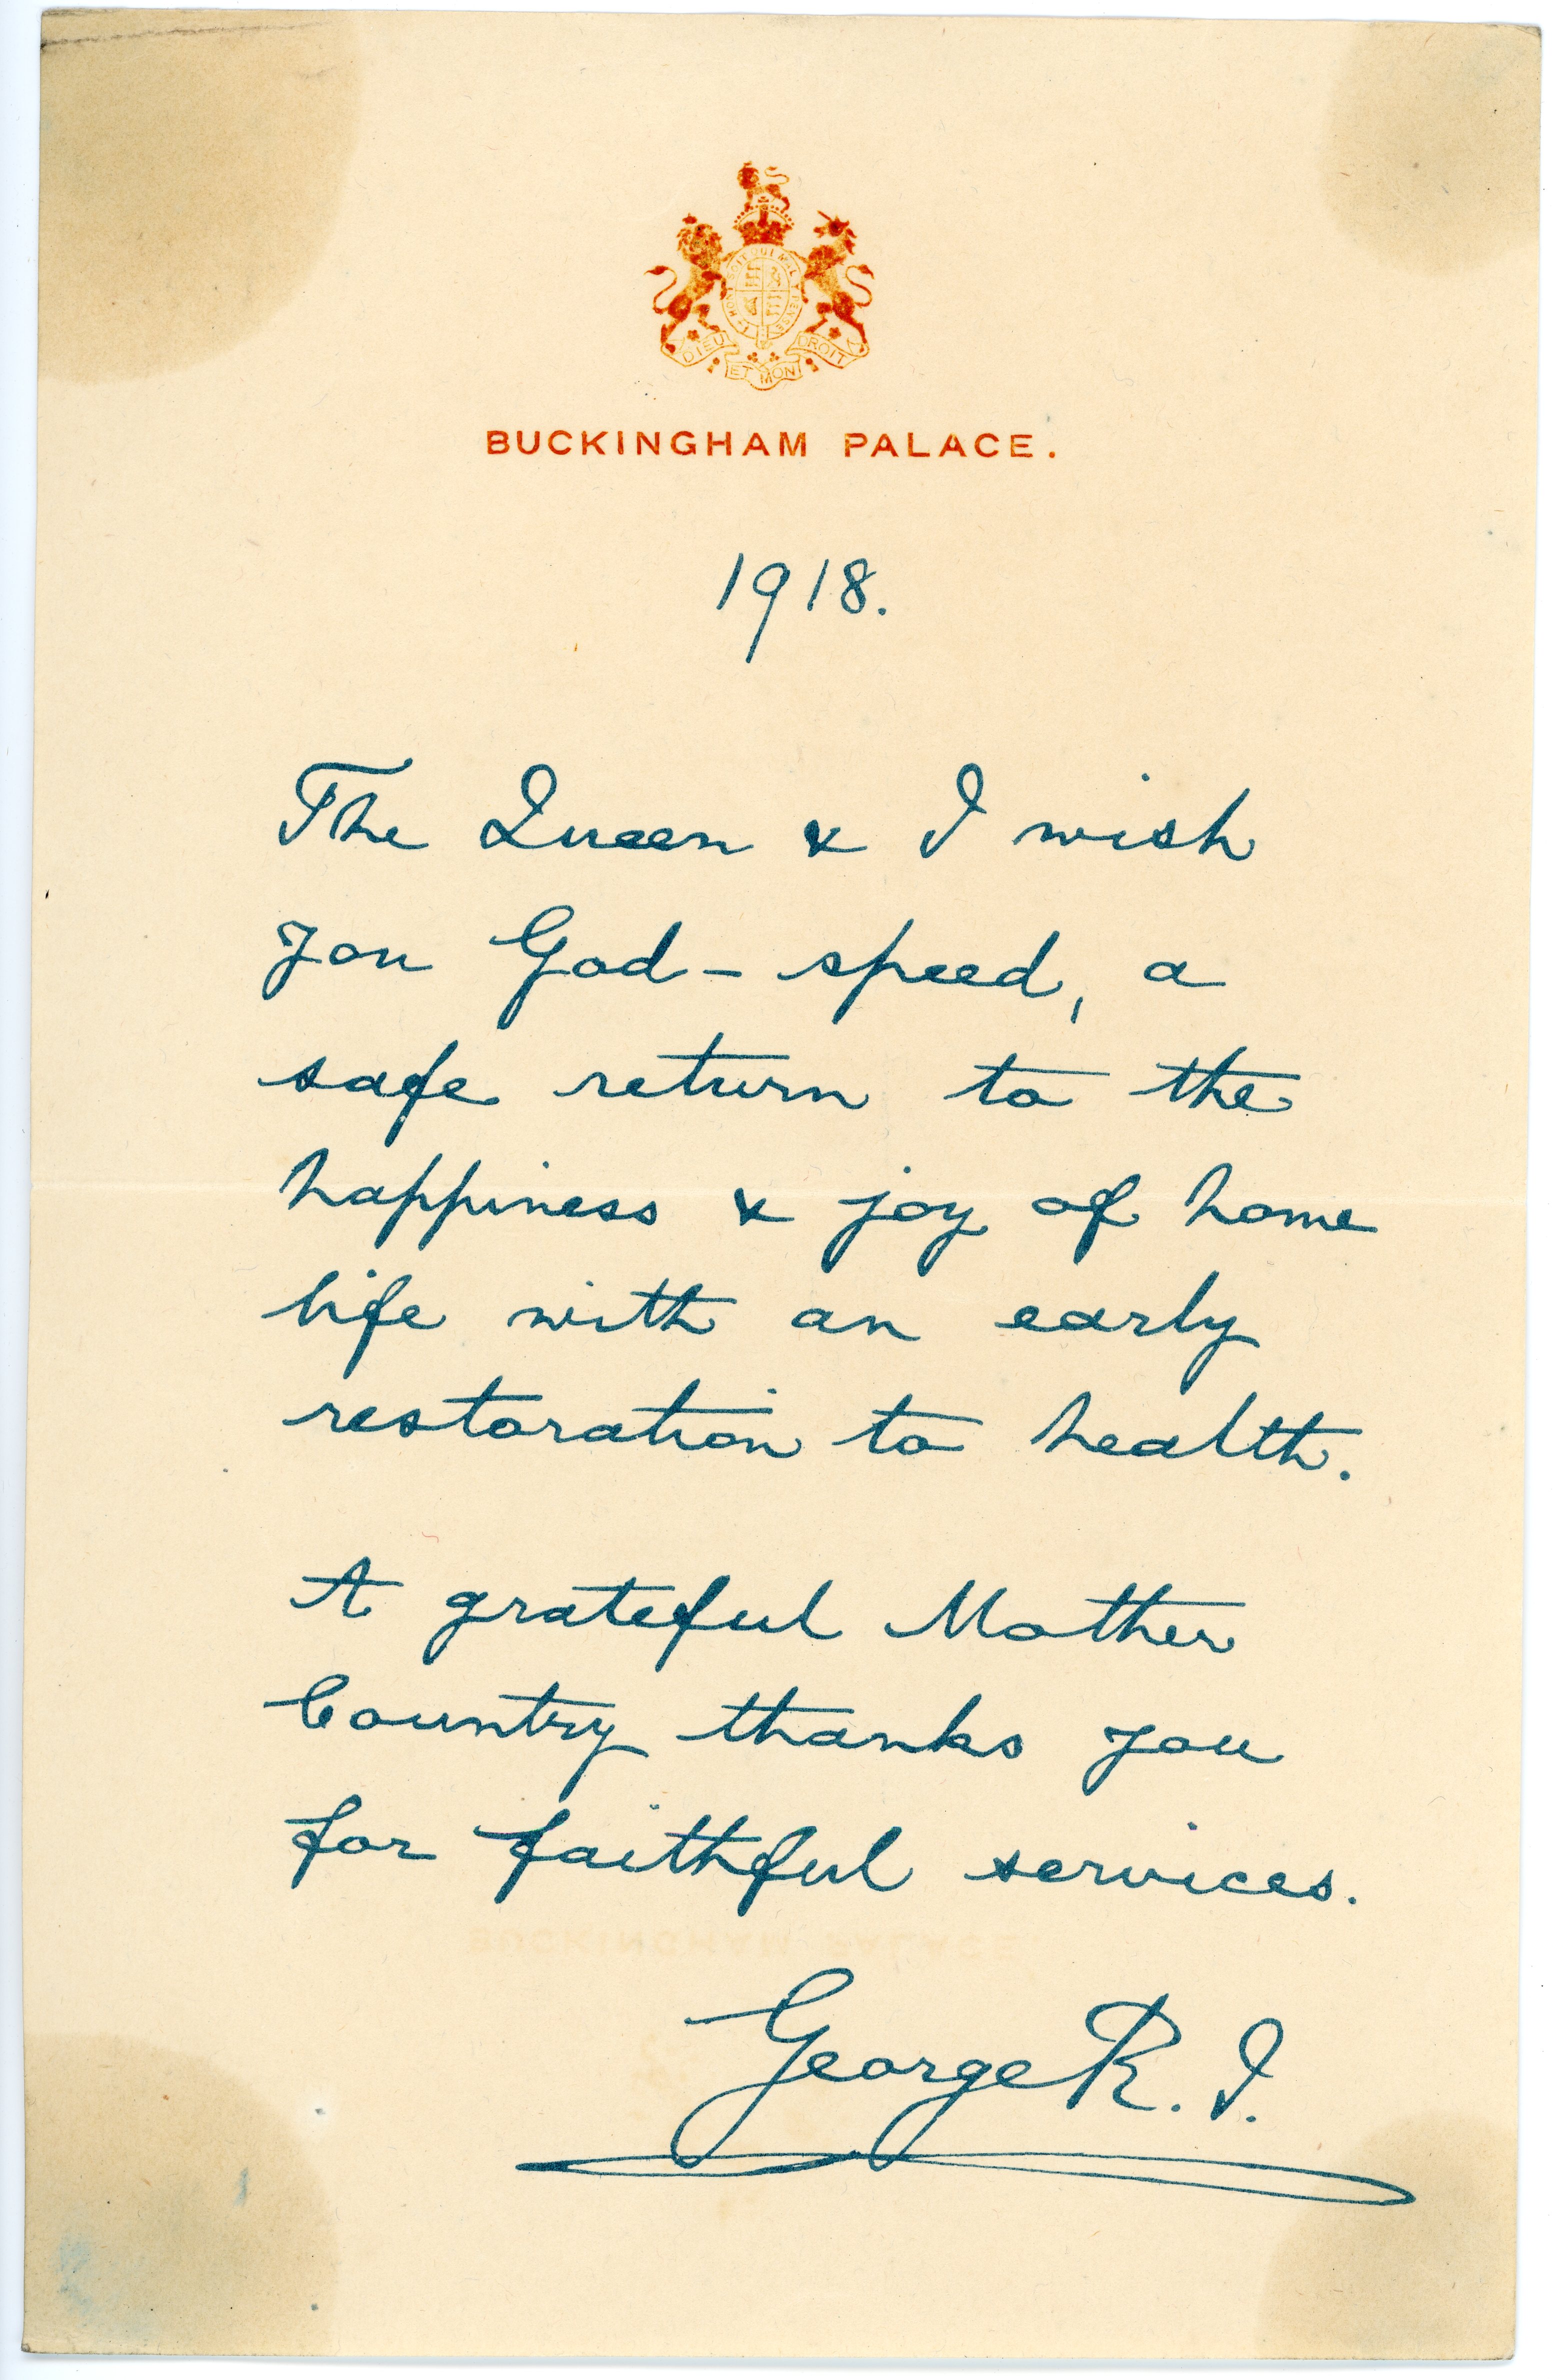 HONI SOIT QUI MAL Y PENSE
DIEU ET MON DROIT
BUCKINGHAM PALACE.
1918.
The Queen & I wish
you God-speed, a
safe return to the
happiness & joy of home
life with an early
restoration to health.
A grateful Mother
Country thanks you
for faithful services.
BUCKINGHAM PALACE
George R. I.